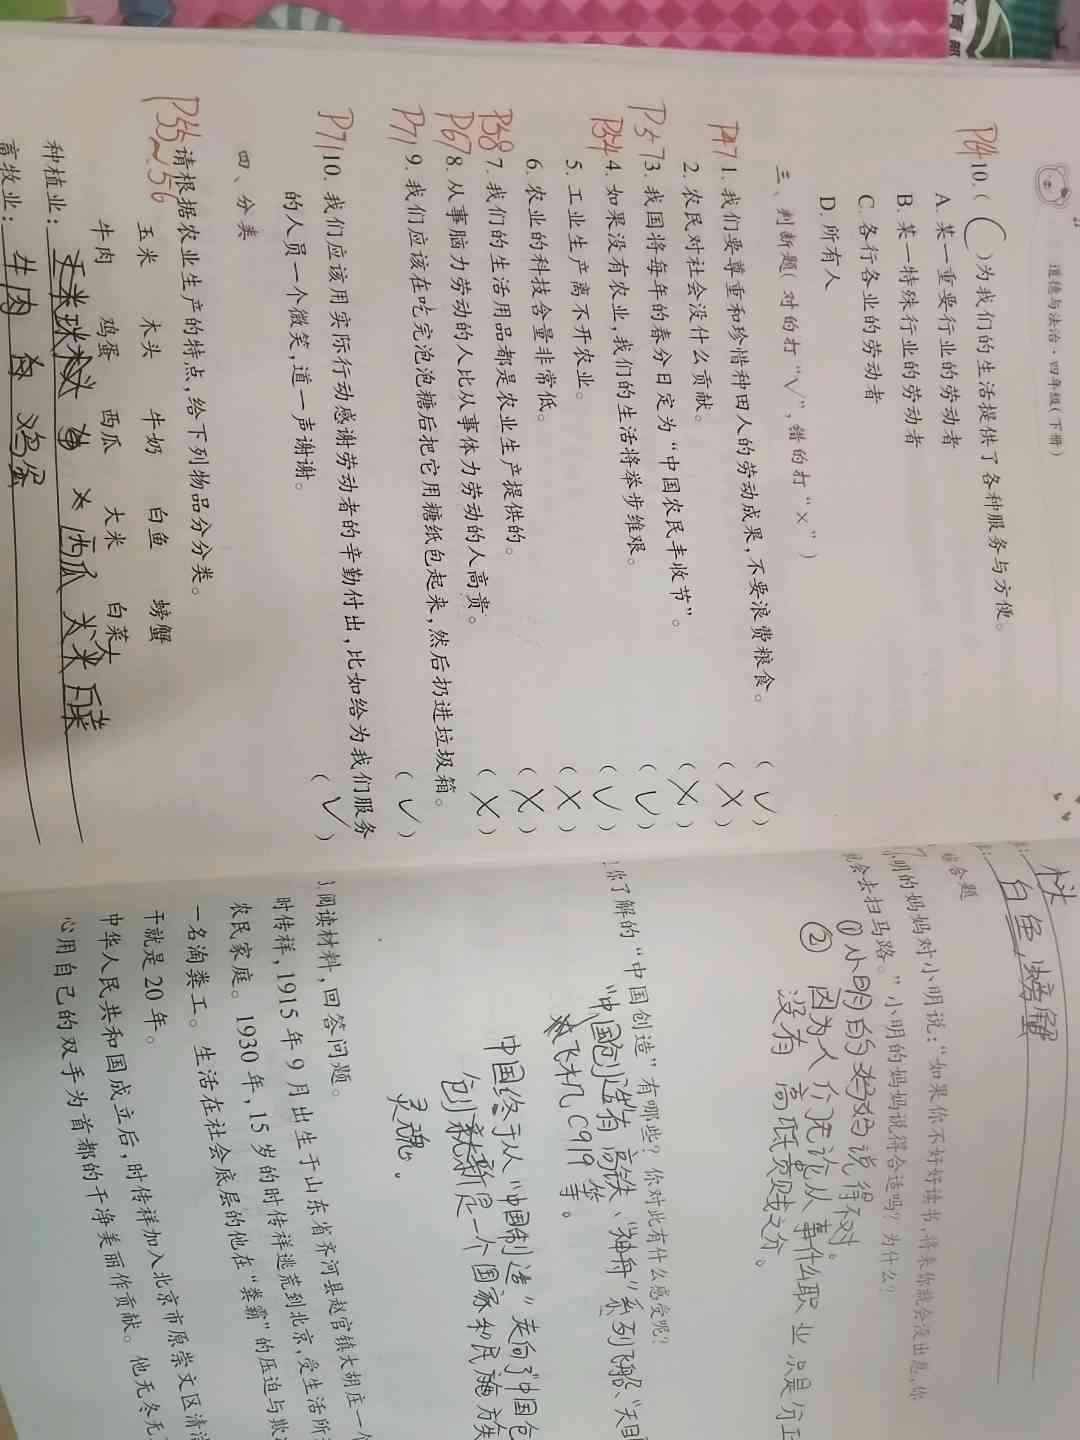 教育部
道德与法治·四年级(下册)
P64 10. ( C )为我们的生活提供了各种服务与方便。
A. 某一重要行业的劳动者
B. 某一特殊行业的劳动者
C. 各行各业的劳动者
D. 所有人
三、判断题(对的打“√”,错的打“×”)
P47 1. 我们要尊重和珍惜种田人的劳动成果,不要浪费粮食。 (√)
2. 农民对社会没什么贡献。 (×)
P57 3. 我国将每年的春分日定为“中国农民丰收节”。 (×)
P54 4. 如果没有农业,我们的生活将举步维艰。 (√)
5. 工业生产离不开农业。 (√)
6. 农业的科技含量非常低。 (×)
P58 7. 我们的生活用品都是农业生产提供的。 (×)
P67 8. 从事脑力劳动的人比从事体力劳动的人高贵。 (×)
P71 9. 我们应该在吃完泡泡糖后把它用糖纸包起来,然后扔进垃圾箱。 (√)
P71 10. 我们应该用实际行动感谢劳动者的辛勤付出,比如给为我们服务
的人员一个微笑,道一声谢谢。 (√)
四、分类
P55~56 请根据农业生产的特点,给下列物品分分类。
玉米 木头 牛奶 白鱼 螃蟹
牛肉 鸡蛋 西瓜 大米 白菜
种植业: 玉米 西瓜 大米 白菜
畜牧业: 牛肉 鸡蛋
白鱼,螃蟹
综合题
小明的妈妈对小明说:“如果你不好好读书,将来你就会没出息,你
就会去扫马路。”小明的妈妈说得合适吗?为什么?
①小明的妈妈说得不对。
② 因为人们无论从事什么职业只是分工
没有高低贵贱之分。
你了解的“中国创造”有哪些?你对此有什么感受呢?
“中国创造”有高铁、“神舟”系列飞船、
飞机C919等。
中国终于从“中国制造”走向了“中国创
创新是一个国家和民族
灵魂。
3. 阅读材料,回答问题。
时传祥,1915年9月出生于山东省齐河县赵官镇大胡庄一个
农民家庭。1930年,15岁的时传祥逃荒到北京,受生活所
一名淘粪工。生活在社会底层的他在“粪霸”的压迫与欺
干就是20年。
中华人民共和国成立后,时传祥加入北京市原崇文区清
心用自己的双手为首都的干净美丽作贡献。他无冬无